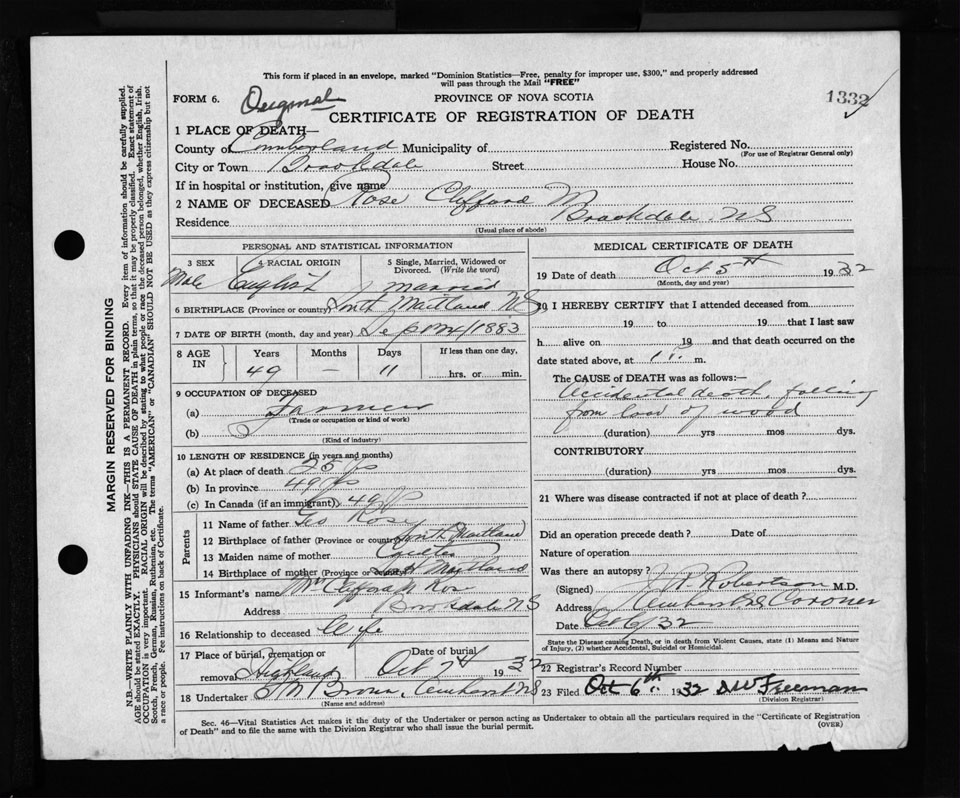 This form if placed in an envelope, marked "Dominion Statistics—Free, penalty for improper use, $300," and properly addressed
will pass through the Mail "FREE"
FORM 6. Original PROVINCE OF NOVA SCOTIA 1332
CERTIFICATE OF REGISTRATION OF DEATH
1 PLACE OF DEATH—
County of Cumberland Municipality of Registered No.
(For use of Registrar General only)
City or Town Brookdale Street House No.
If in hospital or institution, give name
2 NAME OF DECEASED Rose Clifford M
Residence Brookdale NS
(Usual place of abode)
PERSONAL AND STATISTICAL INFORMATION
3 SEX 4 RACIAL ORIGIN 5 Single, Married, Widowed or
Divorced. (Write the word)
Male English married
6 BIRTHPLACE (Province or country) South Maitland NS
7 DATE OF BIRTH (month, day and year) 1883
8 AGE IN Years Months Days If less than one day,
49 — 11 hrs. or min.
9 OCCUPATION OF DECEASED
(a) Farmer
(Trade or occupation or kind of work)
(b)
(Kind of industry)
10 LENGTH OF RESIDENCE (in years and months)
(a) At place of death 25 yrs
(b) In province 49 yrs
(c) In Canada (if an immigrant) 49
Parents
11 Name of father Geo Rose
12 Birthplace of father (Province or country) South Maitland
13 Maiden name of mother
14 Birthplace of mother (Province or country) South Maitland
15 Informant's name Mrs Clifford M Rose
Address Brookdale NS
16 Relationship to deceased Wife
17 Place of burial, cremation or Date of burial
removal Highland Oct 7th 1932
18 Undertaker Brown, Amherst NS
(Name and address)
MEDICAL CERTIFICATE OF DEATH
19 Date of death Oct 5th 1932
(Month, day and year)
20 I HEREBY CERTIFY that I attended deceased from
19 to 19 that I last saw
h alive on 19 and that death occurred on the
date stated above, at m.
The CAUSE OF DEATH was as follows:—
Accidental death, falling
from load of wood
(duration) yrs mos dys.
CONTRIBUTORY
(duration) yrs mos dys.
21 Where was disease contracted if not at place of death?
Did an operation precede death? Date of
Nature of operation
Was there an autopsy?
(Signed) Robertson M.D.
Address Amherst NS Coroner
Date Oct 6/32
State the Disease causing Death, or in death from Violent Causes, state (1) Means and Nature
of Injury, (2) whether Accidental, Suicidal or Homicidal.
22 Registrar's Record Number
23 Filed Oct 6th 1932 Freeman
(Division Registrar)
Sec. 46—Vital Statistics Act makes it the duty of the Undertaker or person acting as Undertaker to obtain all the particulars required in the "Certificate of Registration
of Death" and to file the same with the Division Registrar who shall issue the burial permit. (OVER)
MARGIN RESERVED FOR BINDING
N.B.—WRITE PLAINLY WITH UNFADING INK—THIS IS A PERMANENT RECORD. Every item of information should be carefully supplied.
AGE should be stated EXACTLY. PHYSICIANS should STATE CAUSE OF DEATH in plain terms, so that it may be properly classified. Exact statement of
OCCUPATION is very important. RACIAL ORIGIN will be described by stating to what people or race the deceased person belonged, whether English, Irish,
Scotch, French, German, Russian, Ruthenian, etc. The terms "AMERICAN" or "CANADIAN" SHOULD NOT BE USED as they express citizenship but not
a race or people. Fee instructions on back of Certificate.